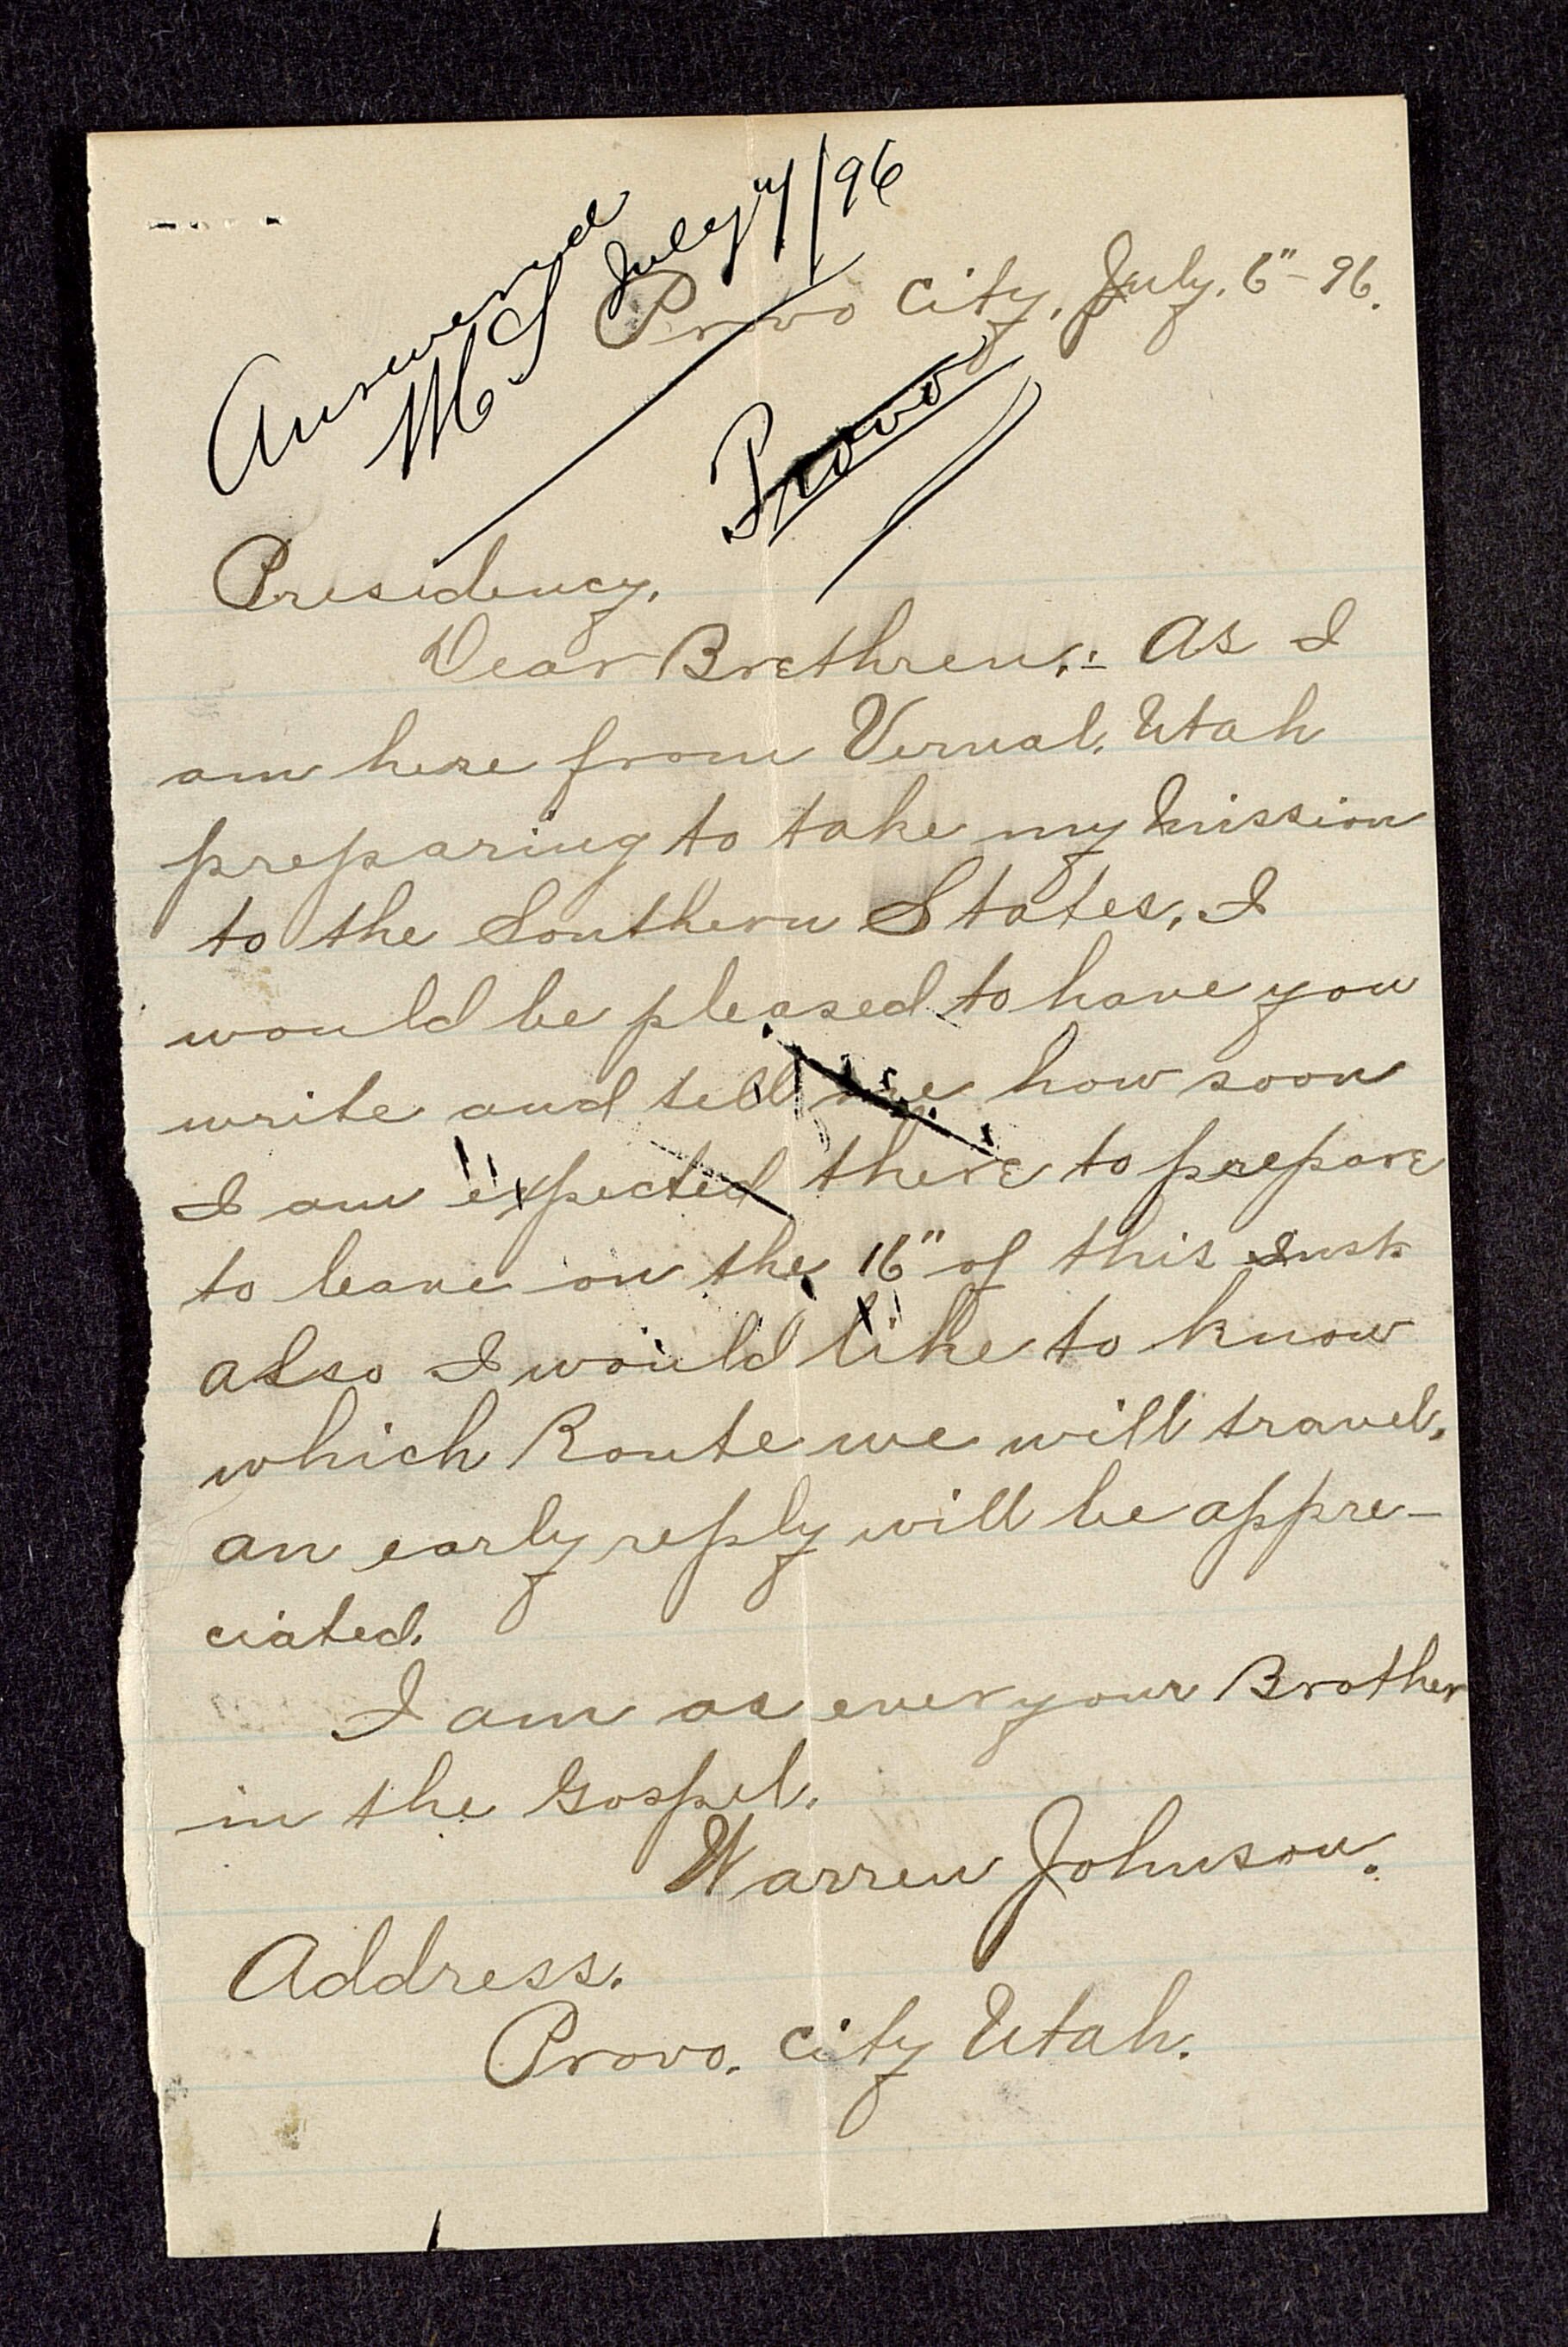 Answered
July 7/96
Provo City, July. 6"-96.
Provo
Presidency.
Dear Brethren.:- As I
am here from Vernal, Utah
preparing to take my Mission
to the Southern States, I
would be pleased to have you
write and tell me how soon
I am expected there to prepare
to leave on the 16" of this Inst
also I would like to know
which Route we will travel.
an early reply will be appre-
ciated.
I am as ever your Brother
in the Gospel.
Warren Johnson.
Address.
Provo. City Utah.